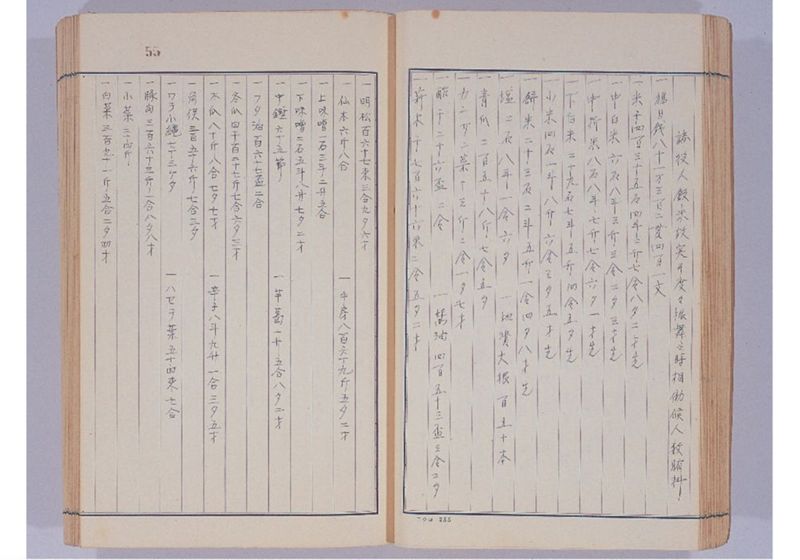 諸役人飯米故実并度々振舞之時相働候人数賄料
一 鳩目銭八十一万三百二貫四百一文
一 米千四百三十五石四斗三升七合八夕二才先
一 中白米六石八斗三升三合二夕三才先
一 中籾米八石八斗七升七合六夕一才先
一 下白米二十九石七斗五升四合五夕先
一 小米四石一斗八升六合三夕五才先
一 餅米二十三石二斗五升一合四夕八才先
一 塩二石八斗一合六夕
一 地漬大根百五十本
一 青瓜二百五十八斤七合五夕
一 カミフリ菜十三斤二合一夕七才
一 酢千二十六盃二合
一 醤油四百五十三盃三合二夕
一 薪木千七百六十六束二合五夕二才
55
一 明松百六十七束三合九夕六才
一 牛房八百六十九斤五夕二才
一 仙木六斤八合
一 上味噌一石三斗二升五合
一 下味噌二石五斗八升七夕二才
一 中鰹六十五節
一 苧葛一斤五合八夕二才
一 フタ油百六十七盃二合
一 冬瓜四千百二十七斤七合六夕三才
一 木瓜八十斤八合七夕七才
一 辛子八斗九升一合三夕五才
一 角俣三百五十六斤七合二夕
一 ワラ小縄七千三十タ
一 ハセヲ葉五十四束七合
一 豚肉三百六十三斤二合八夕八才
一 小菜二十四斤
一 白菜三百九十一斤五合二夕四才
コウ4 255